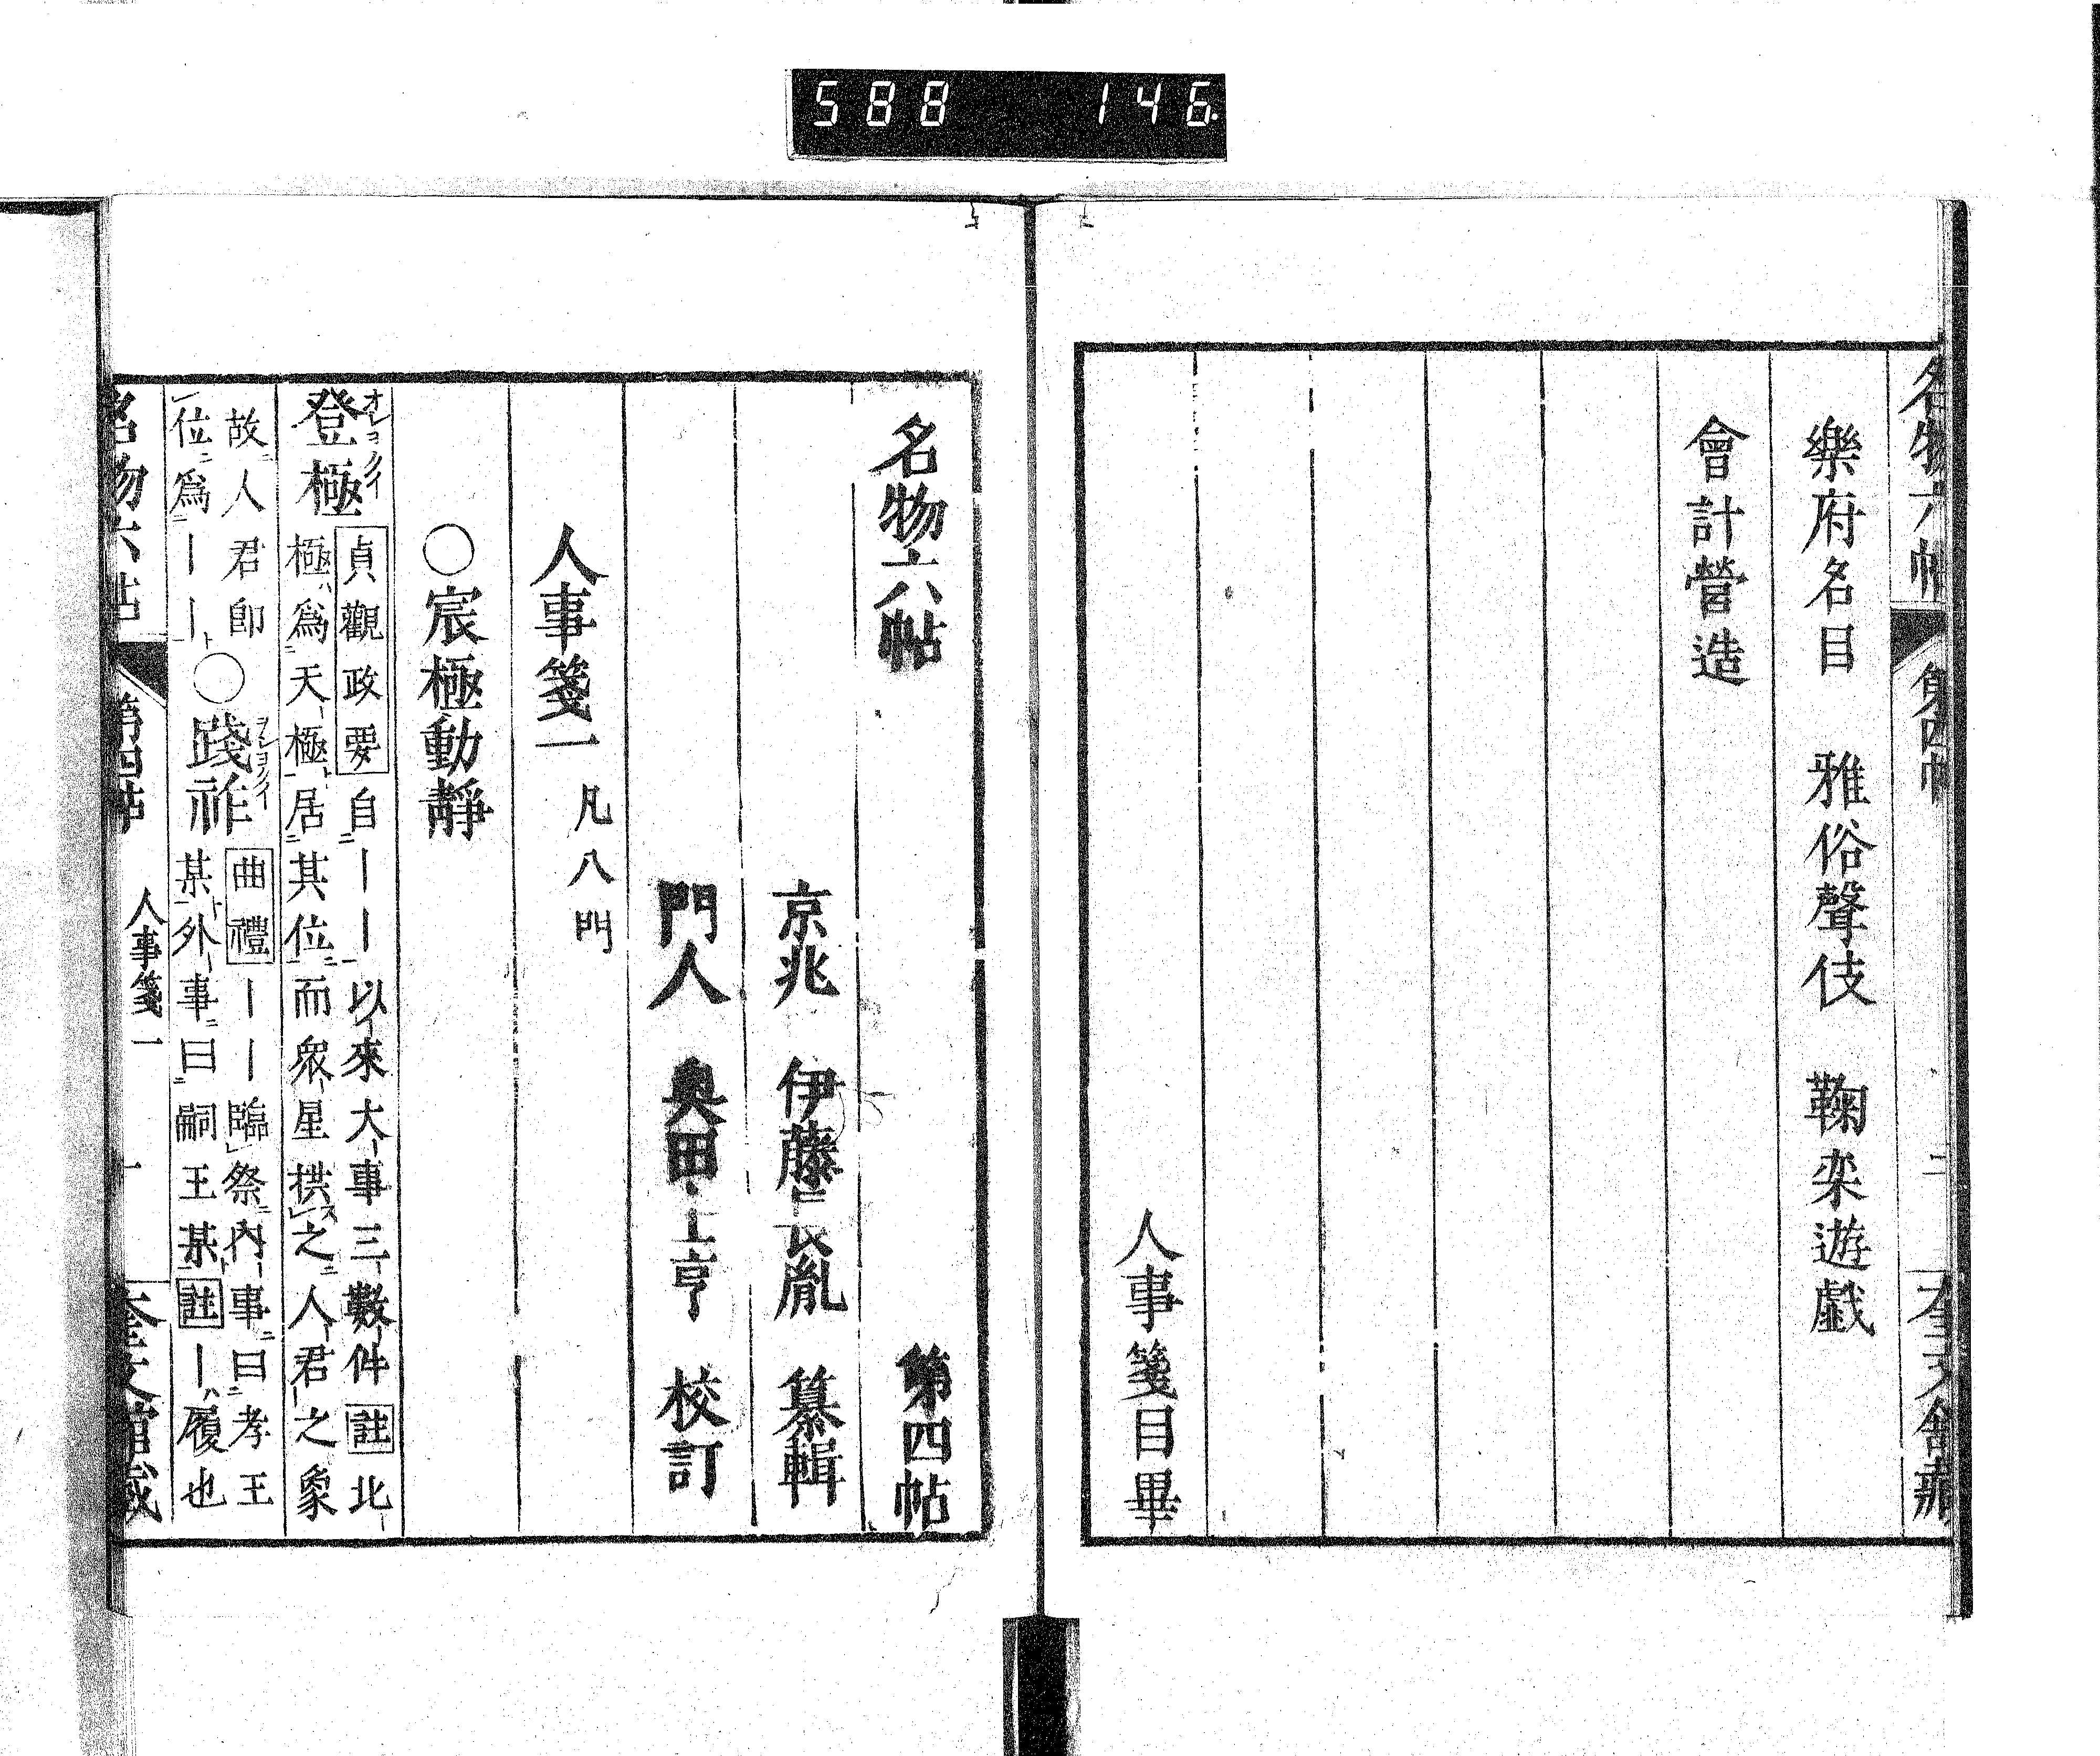 588 146
名物六帖 第四帖 二 奎文館藏
樂府名目 雅俗聲伎 鞠栥遊戲
會計營造
人事箋目畢
名物六帖 第四帖
京兆 伊藤長胤 纂輯
門人 奥田士亨 校訂
人事箋一 凡八門
○宸極動靜
登極 貞觀政要自〡〡以來大事三數件註北
極爲天極居其位而衆星拱之人君之象
故人君卽
位爲〡〡○踐祚 曲禮〡〡臨祭內事曰孝王
某外事曰嗣王某註〡履也
名物六帖 第四帖 人事箋一 一 奎文館藏